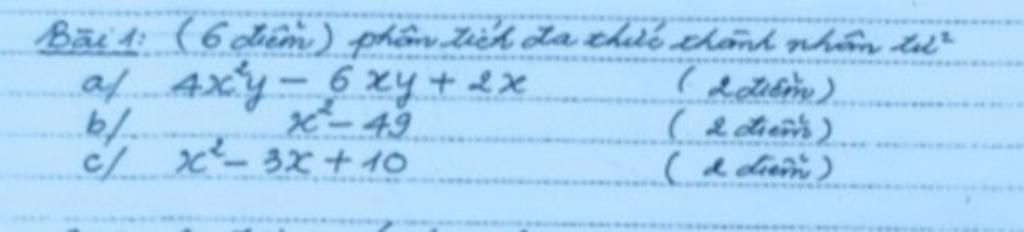 Bài 1: (6 điểm) phân tích đa thức thành nhân tử
a/ 4x²y - 6xy + 2x (2 điểm)
b/ x² - 49 (2 điểm)
c/ x² - 3x + 10 (2 điểm)